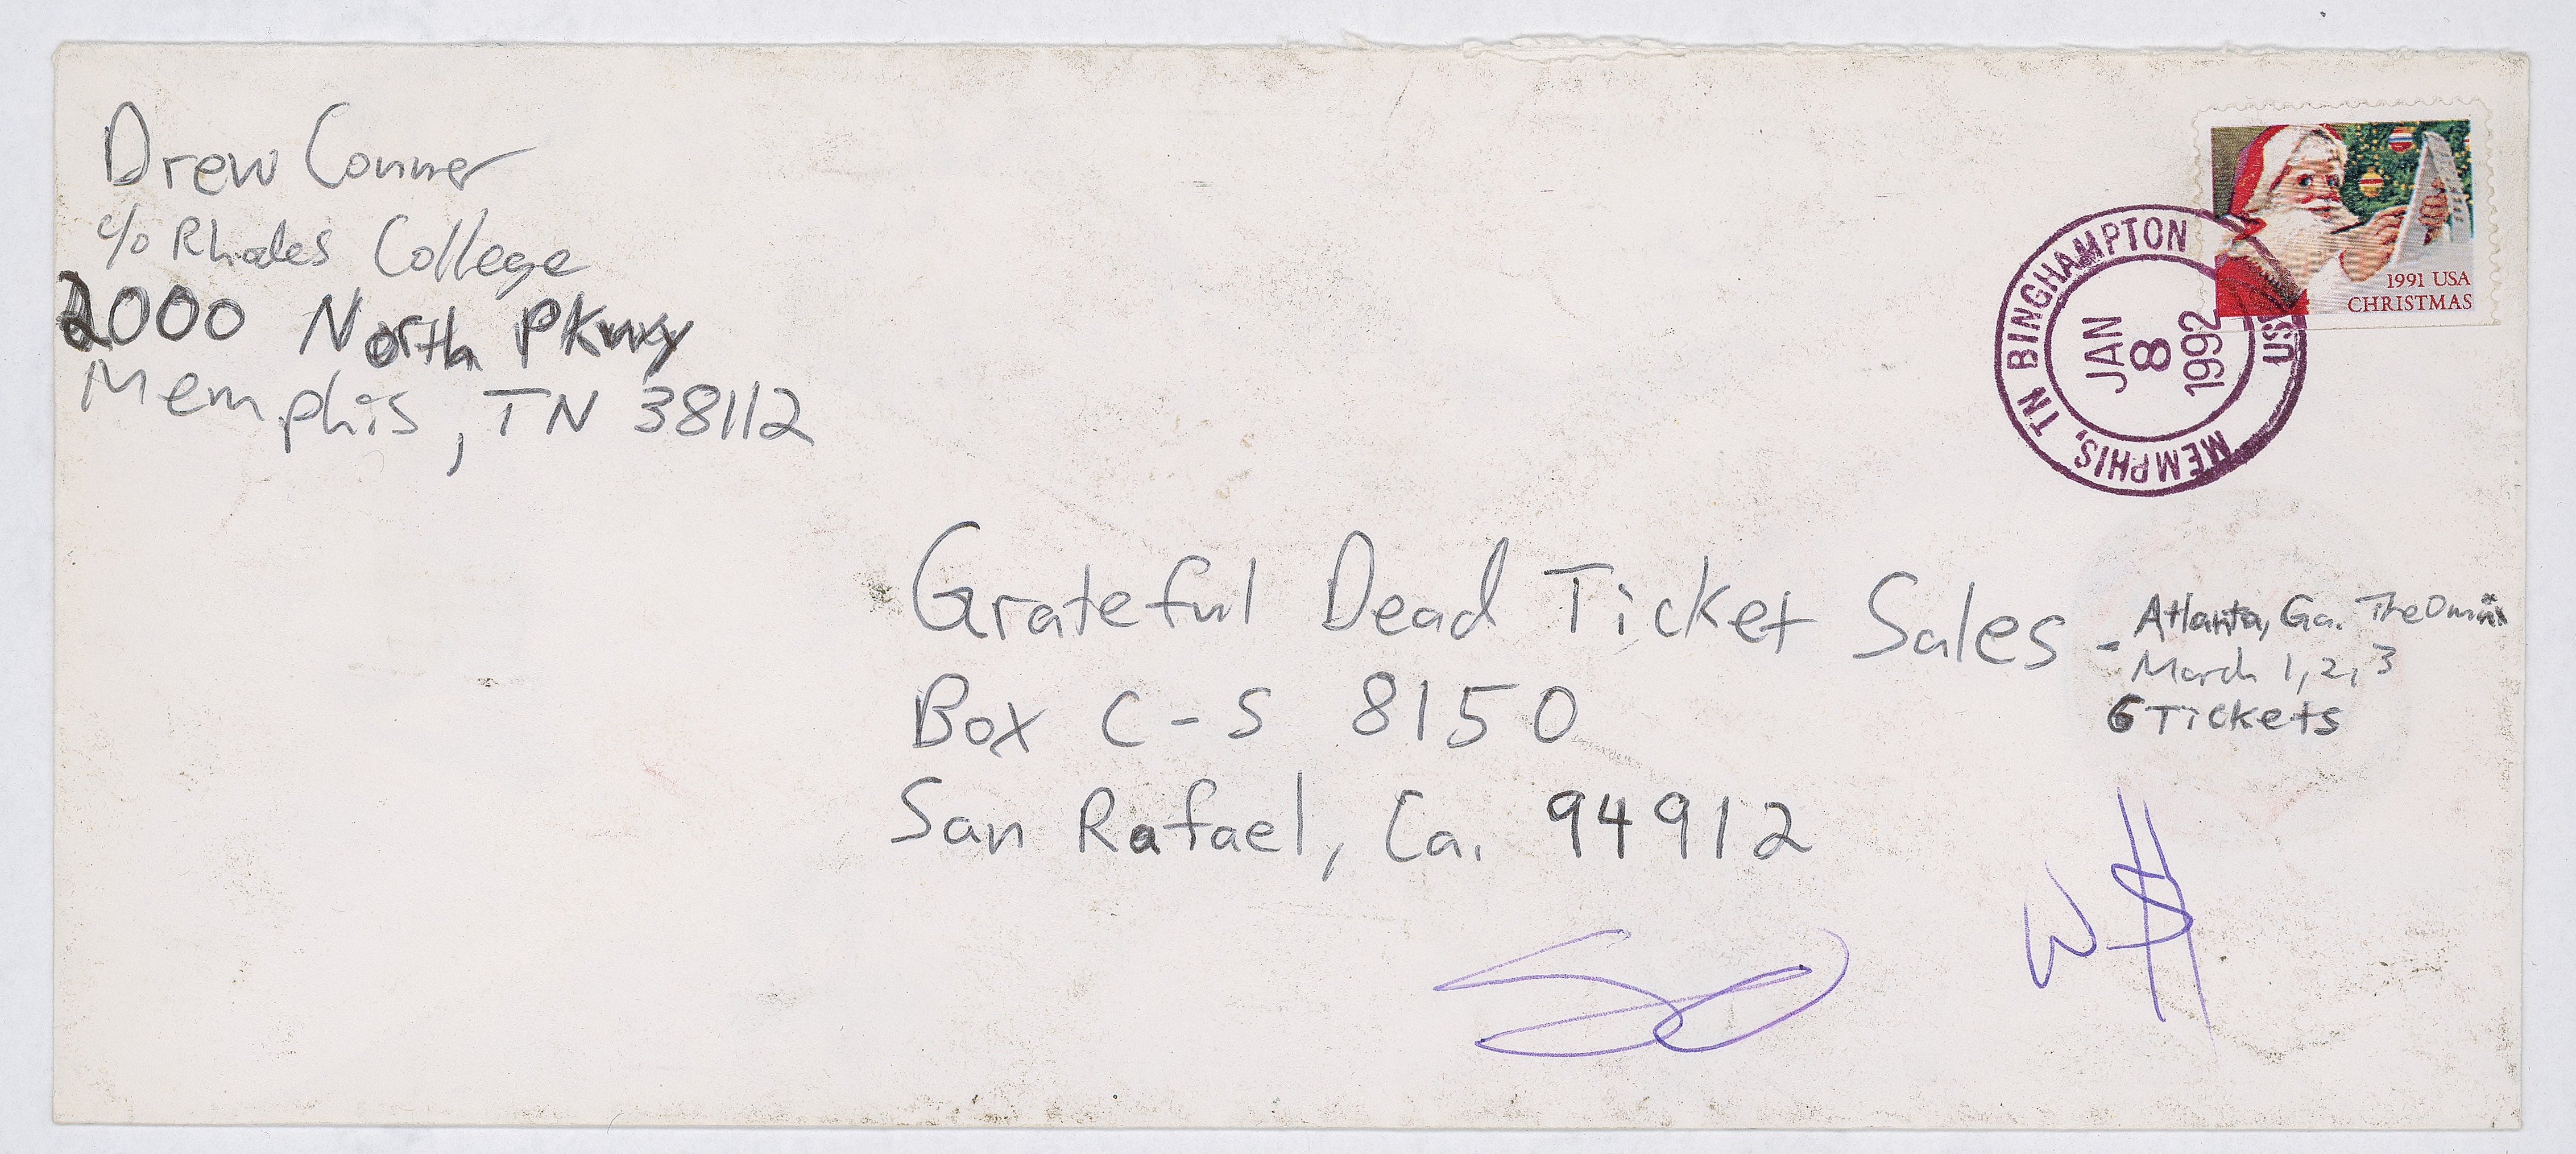 Drew Conner
c/o Rhodes College
2000 North Pkwy
Memphis, TN 38112
1991 USA
CHRISTMAS
MEMPHIS, TN BINGHAMPTON
JAN
8
1992
Grateful Dead Ticket Sales -
Atlanta, Ga. The Omni
March 1, 2, 3
6 Tickets
Box C-S 8150
San Rafael, Ca. 94912